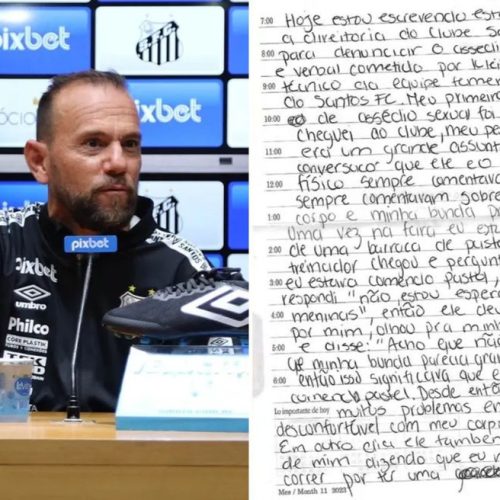 pixbet
pixbet
ÓCIO
pixbet
pixbet
pixbet
umbro
Philco
7:00 Hoje estou escrevendo est
a diretoria do Clube S
8:00 para denunciar o asséd
e verbal cometido por
9:00 técnico da equipe feme
do Santos FC. Meu primeir
10:00 de asédio sexual foi
cheguei ao clube, meu pe
11:00 era um grande assunt
conversuco que ele e o
12:00 físico sempre comentava
sempre comentavam sobre
1:00 corpo e minha bunda
Uma vez na feira eu est
2:00 de uma barraca de past
treinador chegou e pergun
3:00 eu estava comendo pastel,
respondi "não estou esper
4:00 meninas", então ele de
por mim, olhou pra mi
5:00 e disse: "Acho que nã
minha bunda parecia gra
6:00 então isso significava que e
comendo pastel. Desde ent
Lo importante de hoy muitos problemas e
desconfortável com meu corp
Em outro dia ele també
de mim dizendo que eu n
correr por ter uma
Mes / Month 11 2023